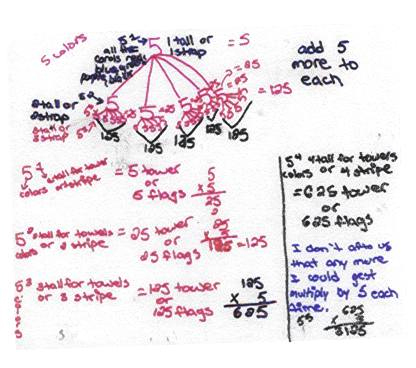 5 colors
5¹ → 5 1 tall or 1 strap = 5
all the
colors red
blue, green
purple, black
add 5
more to
each
5²
2 tall or
2 strap
= 25
= 125
3 tall or
3 strap
5³
125
125
125
125
125
5¹ 1 tall for tower
colors or 1 stripe = 5 tower
or
5 flags
5
x 5
25
5² 2 tall for towels
colors or 2 stripe = 25 tower
or
25 flags
25
x 5
125 = 125
5³ 3 tall for towels
colors or 3 stripe = 125 tower
or
125 flags
125
x 5
625
5⁴ 4 tall for towers
colors or 4 stripe
= 625 tower
or
625 flags
I don't
that any more
I could gest
multiply by 5 each
time.
5⁵
625
x 5
3125